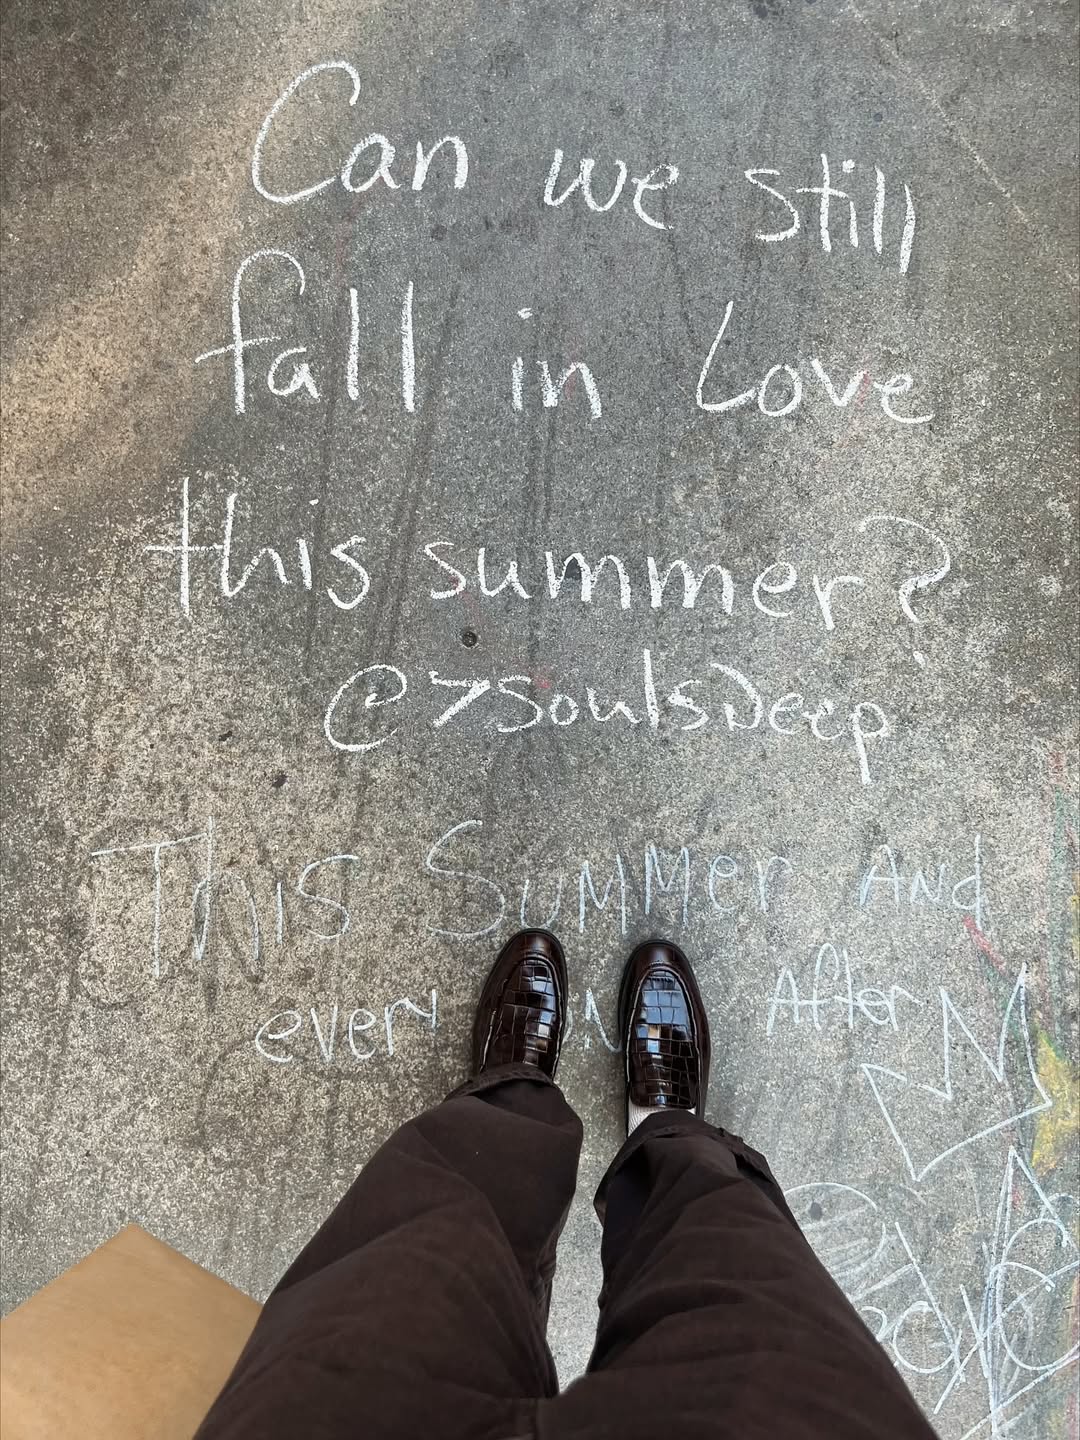 Can we still
fall in Love
this summer?
@7soulsDeep
THIS SUMMer AND
every After